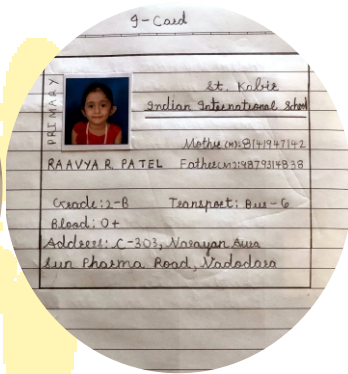 I-Card
PRIMARY
St. Kabir
Indian International School
Mother (M): 8141947142
RAAVYA R. PATEL Father (M): 9879314838
Grade: 2-B Transport: Bus-6
Blood: O+
Address: C-303, Narayan Aura
Sun Pharma Road, Vadodara